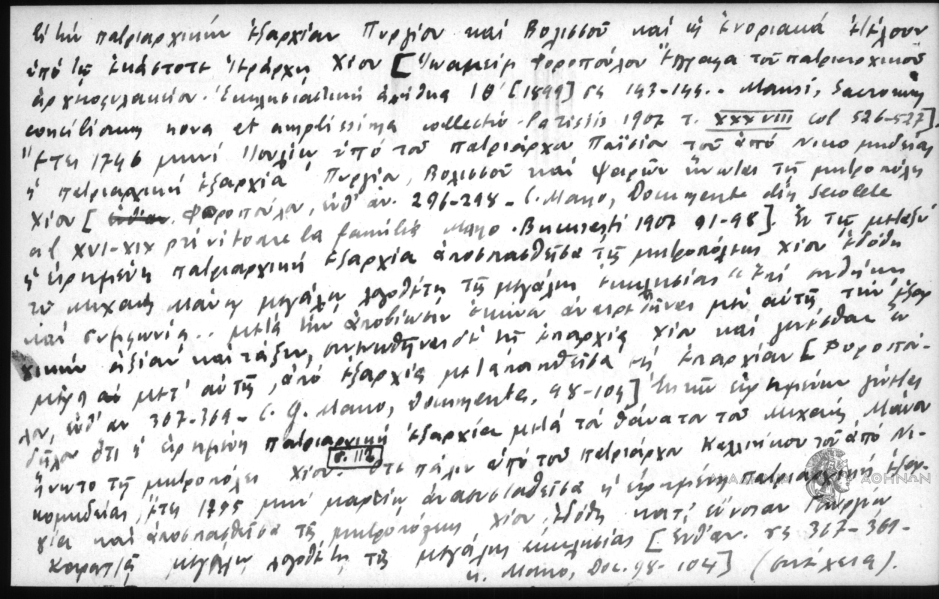 Εἰ τὴν πατριαρχικὴν ἐξαρχίαν Πυργίου καὶ Βολισσοῦ καὶ ἡ ἐνοριακὰ ἐτέλουν
ὑπὸ τῆς ἑκάστοτε ἱεράρχη Χίου [Ἰωακεὶμ Φοροπούλου Ἔγγραφα τοῦ πατριαρχικοῦ
ἀρχιοφυλακείου. Ἐκκλησιαστικὴ ἀλήθεια ΙΘ' [1899] σς 143-145.- Mansi, Sacrorum
conciliorum nova et amplissima collectio - Parisiis 1907 τ. XXXVIII col 526-527]
Ἔτει 1746 μηνὶ Ἰουλίῳ ὑπὸ τοῦ πατριάρχου Παϊσίου τοῦ ἀπὸ Νικομηδείας
ἡ πατριαρχικὴ ἐξαρχία Πυργίου, Βολισσοῦ καὶ Ψαρῶν ἡνώθη τῆς μητροπόλει
Χίου [ Φοροπούλου, ἔνθ' ἀν. 296-298 - C. Mano, Documente din secolele
al XVI-XIX privitoare la familia Mano. Bucuresti 1907 91-98]. Ἐν τῷ μεταξὺ
ἡ εἰρημένη πατριαρχικὴ ἐξαρχία ἀποσπασθεῖσα τῆς μητροπόλεως Χίου ἐδόθη
τῷ Μιχαὴλ Μάνῳ μεγάλῳ λογοθέτῃ τῆς μεγάλης ἐκκλησίας "ἐπὶ συνθήκῃ
καὶ συμφωνίᾳ.. μετὰ τὴν ἀποβίωσιν ἐκείνου ἀναιρεθῆναι μὲν αὐτῆς τὴν ἐξαρ-
χικὴν ἀξίαν καὶ τάξιν, συνενωθῆναι δὲ τῇ ἐπαρχίᾳ Χίου καὶ γενέσθαι ἓν
μετ' αὐτῆς, ἀπὸ ἐξαρχίας μεταποιηθεῖσα εἰς ἐπαρχίαν [Φοροπού-
λου, ἔνθ' ἀν 367-369 - C. G. Mano, Documente, 98-104] Ἐκ τῶν εἰρημένων γίνεται
δῆλον ὅτι ἡ εἰρημένη πατριαρχικὴ ἐξαρχία μετὰ τὸν θάνατον τοῦ Μιχαὴλ Μάνου
ἥνωτο τῇ μητροπόλει Χίου. σ. 112 ὅτε πάλιν ὑπὸ τοῦ πατριάρχου Καλλινίκου τοῦ ἀπὸ Νι-
κομηδείας, ἔτει 1795 μηνὶ μαρτίῳ ἀνασυσταθεῖσα ἡ εἰρημένη πατριαρχικὴ ἐξαρ-
χία καὶ ἀποσπασθεῖσα τῆς μητροπόλεως Χίου, ἐδόθη κατ' εὔνοιαν Γεωργίῳ
Καρατζᾷ μεγάλῳ λογοθέτῃ τῆς μεγάλης ἐκκλησίας [ἔνθ' ἀν. σς 367-369-
C. Mano, Doc. 98-104] (συνέχεια).
ΑΘΗΝΩΝ